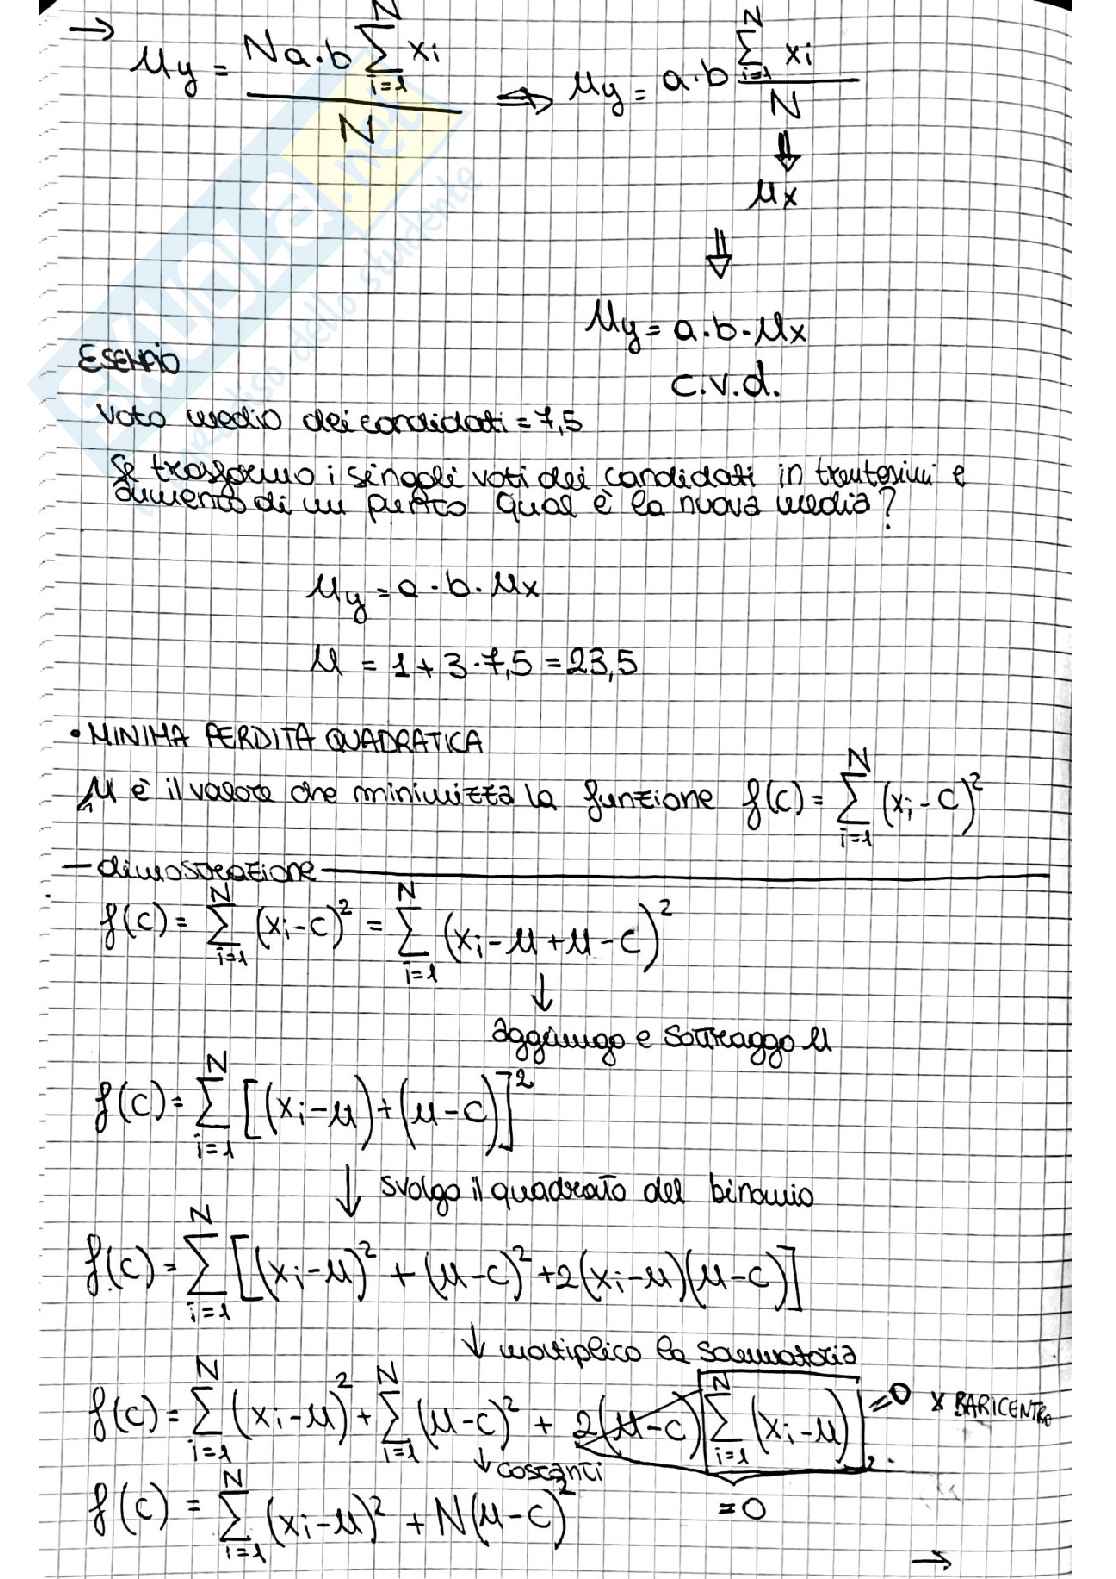 → μy = (Na·b Σ_{i=1}^{N} xi) / N ⇒ μy = a·b (Σ_{i=1}^{N} xi) / N
⇓
μx
⇓
μy = a·b·μx
c.v.d.
ESEMPIO
voto medio dei candidati = 7,5
Se trasformo i singoli voti dei candidati in trentesimi e
aumento di un punto qual è la nuova media?
μy = a·b·μx
μ = 1+3·7,5 = 23,5
• MINIMA PERDITA QUADRATICA
μ è il valore che minimizza la funzione f(c) = Σ_{i=1}^{N} (xi - c)²
— dimostrazione —
f(c) = Σ_{i=1}^{N} (xi - c)² = Σ_{i=1}^{N} (xi - μ + μ - c)²
↓
aggiungo e sottraggo μ
f(c) = Σ_{i=1}^{N} [(xi - μ) + (μ - c)]²
↓ svolgo il quadrato del binomio
f(c) = Σ_{i=1}^{N} [(xi - μ)² + (μ - c)² + 2(xi - μ)(μ - c)]
↓ moltiplico la sommatoria
f(c) = Σ_{i=1}^{N} (xi - μ)² + Σ_{i=1}^{N} (μ - c)² + 2(μ - c) Σ_{i=1}^{N} (xi - μ) = 0 x BARICENTRO
↓ costanti
= 0
f(c) = Σ_{i=1}^{N} (xi - μ)² + N(μ - c)²
→